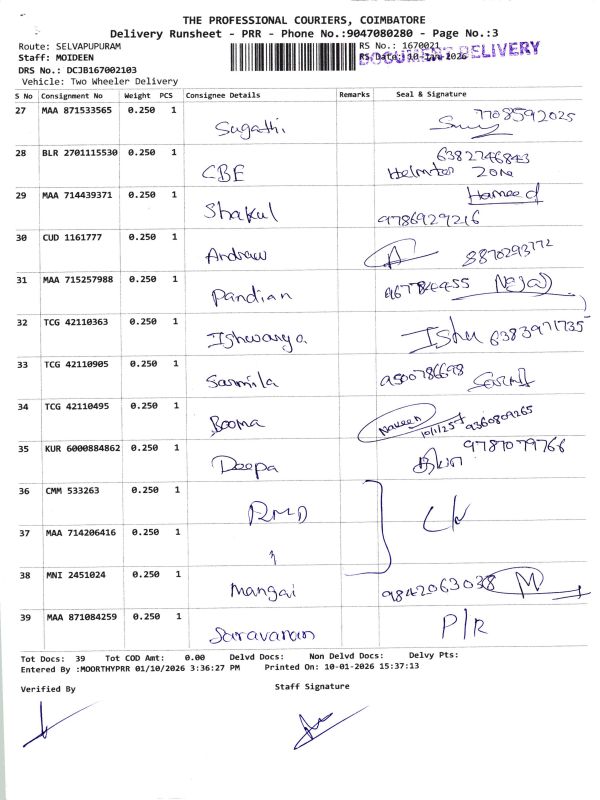 THE PROFESSIONAL COURIERS, COIMBATORE
Delivery Runsheet - PRR - Phone No.:9047080280 - Page No.:3
Route: SELVAPUPURAM
RS No.: 1670021
Staff: MOIDEEN
RS Date: 10-Jan-2026
DOCUMENT DELIVERY
DRS No.: DCJB167002103
Vehicle: Two Wheeler Delivery
S No Consignment No Weight PCS Consignee Details Remarks Seal & Signature
27 MAA 871533565 0.250 1 Sugathi 7708592025
28 BLR 2701115530 0.250 1 CBE 6382746843
Zone
29 MAA 714439371 0.250 1 Shakul Hameed
9786929216
30 CUD 1161777 0.250 1 Andrew A 8870293772
31 MAA 715257988 0.250 1 Pandian
32 TCG 42110363 0.250 1 Ishwarya Ishu 6383971735
33 TCG 42110905 0.250 1 Sarmila 9500786698
34 TCG 42110495 0.250 1 Booma Naveen 9360809265
35 KUR 6000884862 0.250 1 Deepa 9787079766
36 CMM 533263 0.250 1 RMD
37 MAA 714206416 0.250 1
38 MNI 2451024 0.250 1 Mangai 9842063038 M
39 MAA 871084259 0.250 1 Saravanan P/R
Tot Docs: 39 Tot COD Amt: 0.00 Delvd Docs: Non Delvd Docs: Delvy Pts:
Entered By :MOORTHYPRR 01/10/2026 3:36:27 PM Printed On: 10-01-2026 15:37:13
Verified By Staff Signature